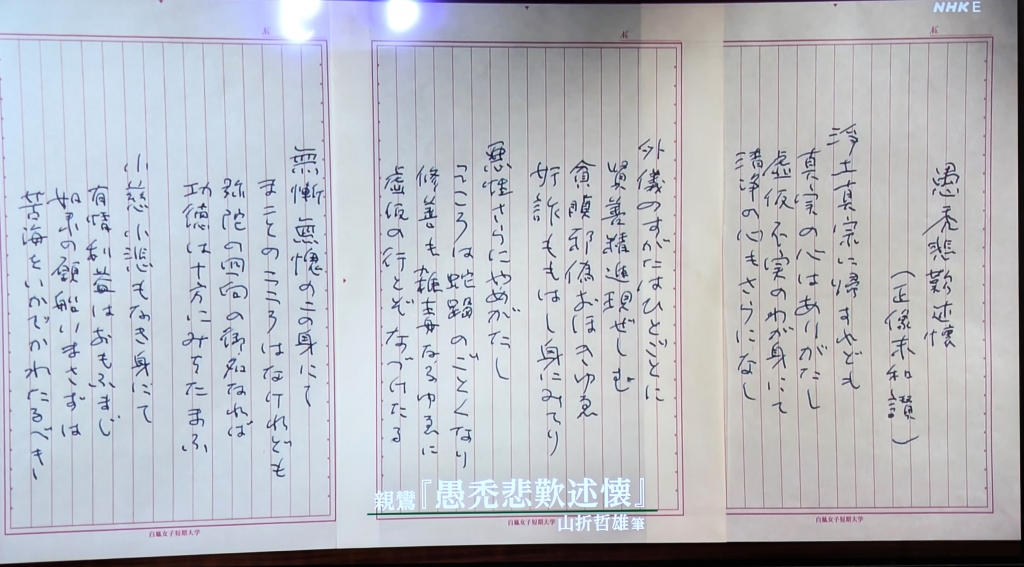 愚禿悲歎述懐
(正像末和讃)
浄土真宗に帰すれども
真実の心はありがたし
虚仮不実のわが身にて
清浄の心もさらになし
外儀のすがたはひとごとに
賢善精進現ぜしむ
貪瞋邪偽おほきゆゑ
奸詐ももはし身にみてり
悪性さらにやめがたし
こころは蛇蝎のごとくなり
修善も雑毒なるゆゑに
虚仮の行とぞなづけたる
無慚無愧のこの身にて
まことのこころはなけれども
弥陀の回向の御名なれば
功徳は十方にみちたまふ
小慈小悲もなき身にて
有情利益はおもふまじ
如来の願船いまさずは
苦海をいかでかわたるべき
白鳳女子短期大学
白鳳女子短期大学
白鳳女子短期大学
親鸞『愚禿悲歎述懐』
山折哲雄 筆
NHK E